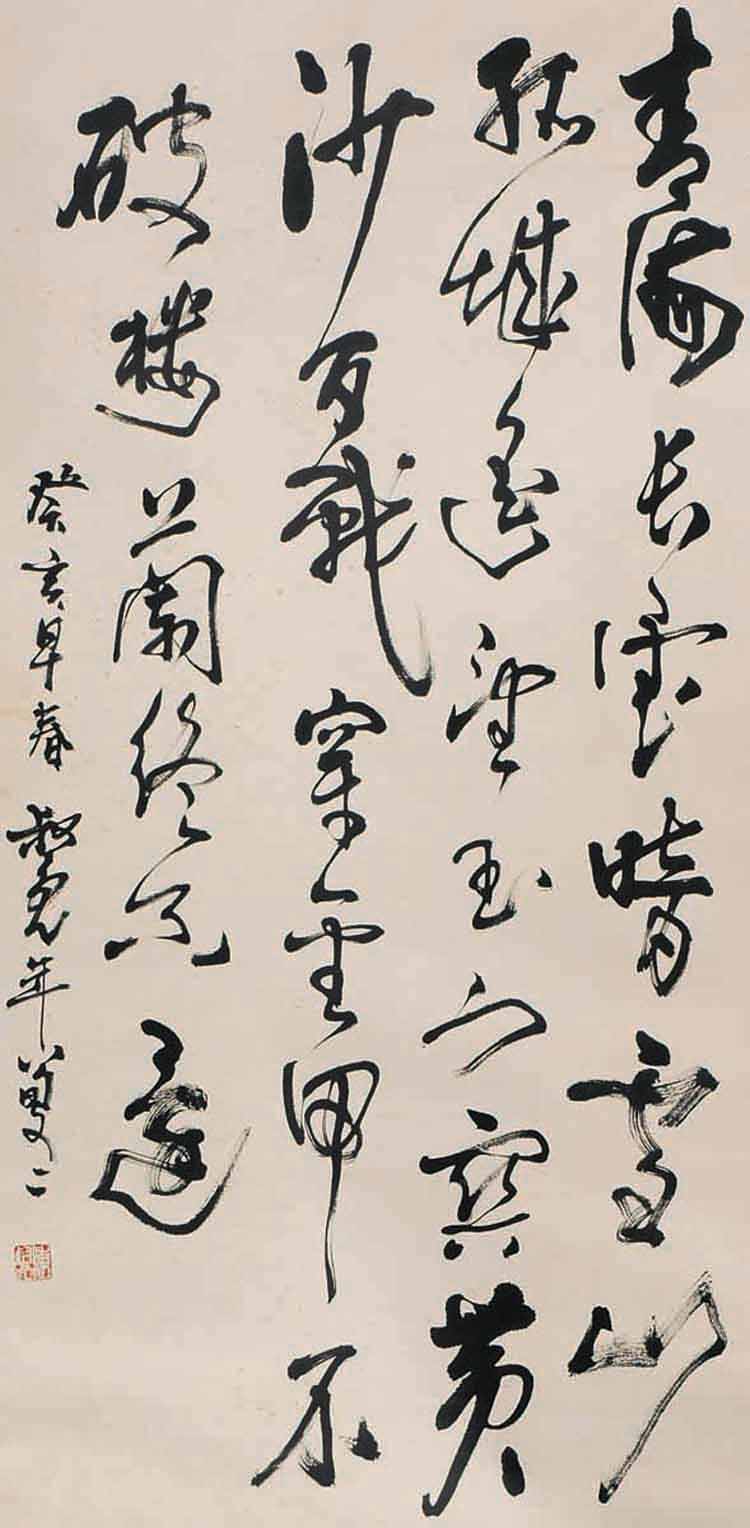 青海長雲暗雪山
孤城遙望玉門關黃
沙百戰穿金甲不
破樓蘭終不還
癸亥早春 叔亮年二